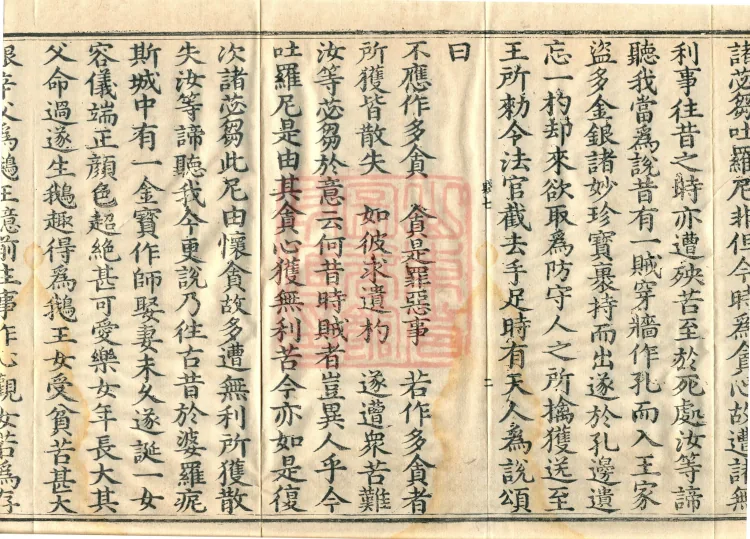 諸苾芻吐羅尼非但今時為貪心故遭諸無
利事往昔之時亦遭殃苦至於死處汝等諦
聽我當為說昔有一賊穿牆作孔而入王家
盜多金銀諸妙珍寶裹持而出遂於孔邊遺
忘一杓却來欲取為防守人之所擒獲送至
王所勑令法官截去手足時有天人為說頌
曰
不應作多貪　貪是罪惡事　若作多貪者
所獲皆散失　如彼求遺杓　遂遭衆苦難
汝等苾芻於意云何昔時賊者豈異人乎今
吐羅尼是由其貪心獲無利苦今亦如是復
次諸苾芻此尼由懷貪故多遭無利所獲散
失汝等諦聽我今更說乃往古昔於婆羅痆
斯城中有一金寶作師娶妻未久遂誕一女
容儀端正顏色超絕甚可愛樂女年長大其
父命過遂生鵝趣得為鵝王女受貧苦甚大
艱辛父為鵝王憶前生事作心觀女若為存
二